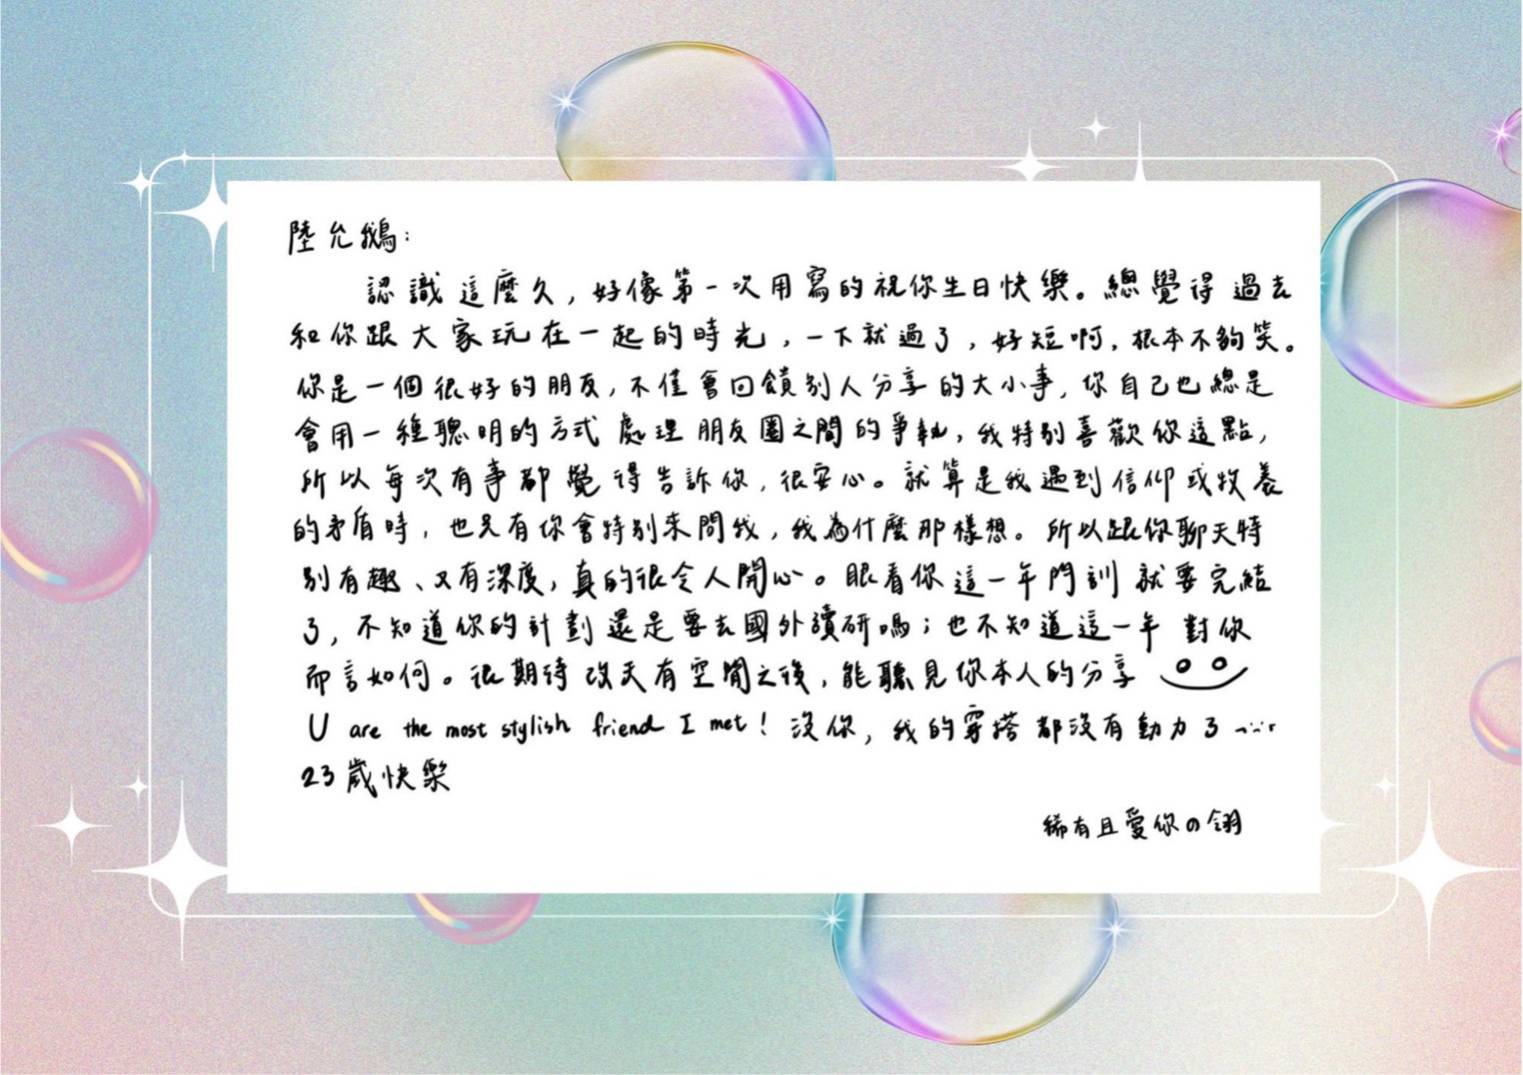 陸允鵝：
認識這麼久，好像第一次用寫的祝你生日快樂。總覺得過去
和你跟大家玩在一起的時光，一下就過了，好短啊，根本不夠笑。
你是一個很好的朋友，不僅會回饋別人分享的大小事，你自己也總是
會用一種聰明的方式處理朋友圈之間的爭執，我特別喜歡你這點，
所以每次有事都覺得告訴你，很安心。就算是我遇到信仰或牧養
的矛盾時，也只有你會特別來問我，我為什麼那樣想。所以跟你聊天特
別有趣、又有深度，真的很令人開心。眼看你這一年門訓就要完結
了，不知道你的計劃還是要去國外讀研嗎；也不知道這一年對你
而言如何。很期待改天有空閒之後，能聽見你本人的分享
U are the most stylish friend I met！沒你，我的穿搭都沒有動力了
23歲快樂
稀有且愛你の翎